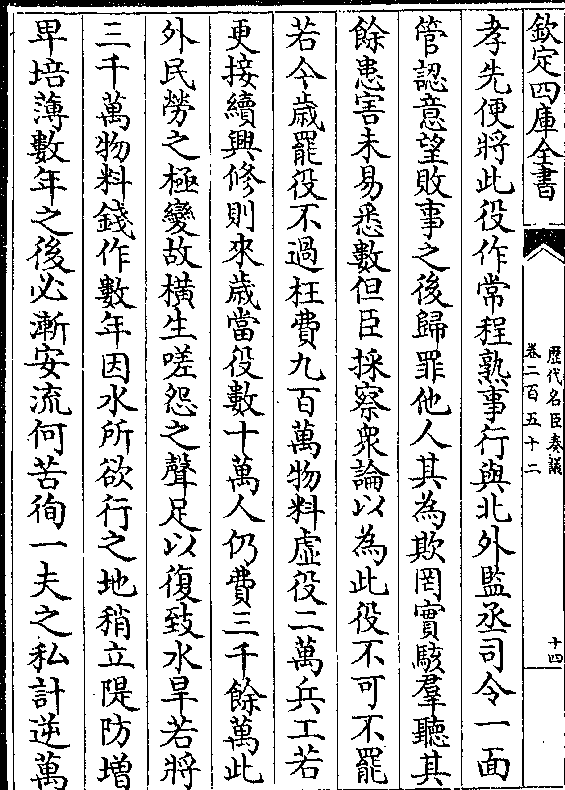 欽定四庫全書
歷代名臣奏議
卷二百五十二
十四
孝先便將此役作常程熟事行與北外監丞司令一面
管認意望敗事之後歸罪他人其為欺罔實駭羣聽其
餘患害未易悉數但臣採察衆論以為此役不可不罷
若今歳罷役不過枉費九百萬物料虚役二萬兵工若
更接續興修則來歳當役數十萬人仍費三千餘萬此
外民勞之極變故橫生嗟怨之聲足以復致水旱若將
三千萬物料錢作數年因水所欲行之地稍立隄防增
卑培薄數年之後必漸安流何苦徇一夫之私計逆萬